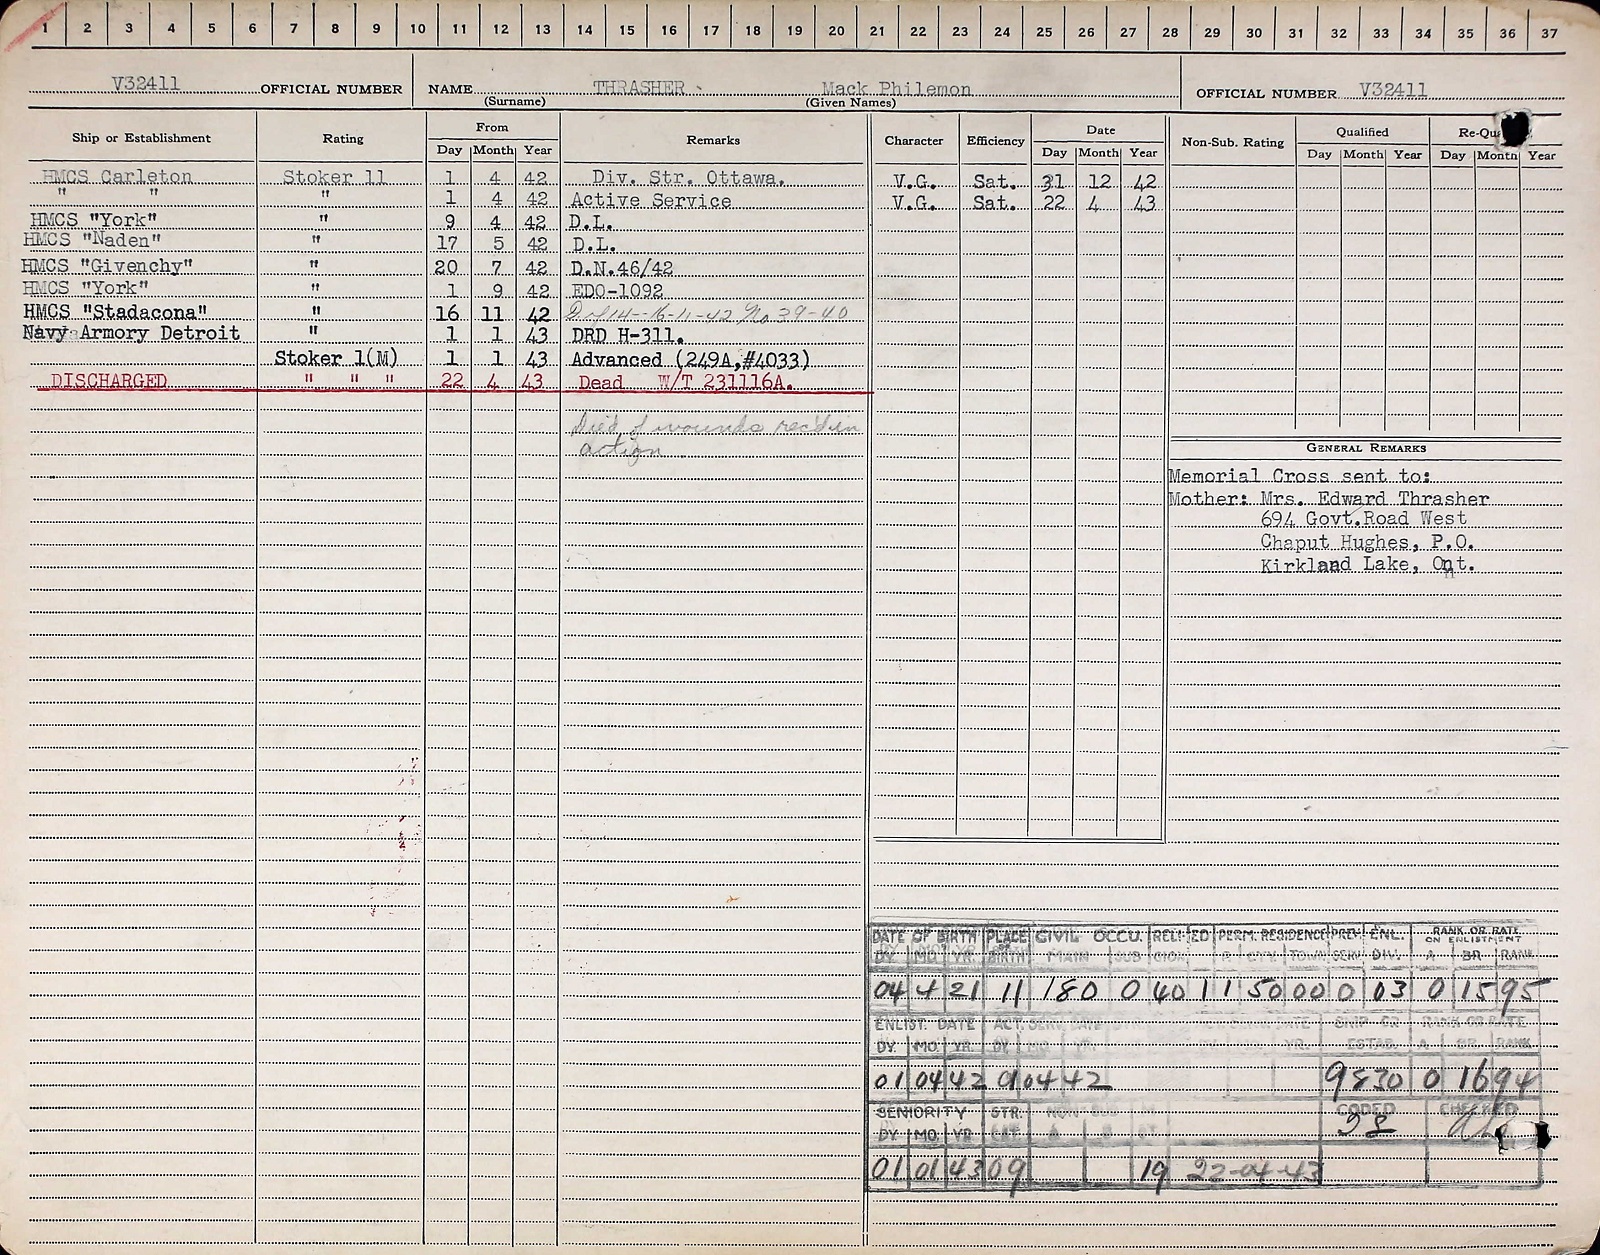 1 2 3 4 5 6 7 8 9 10 11 12 13 14 15 16 17 18 19 20 21 22 23 24 25 26 27 28 29 30 31 32 33 34 35 36 37
V32411 OFFICIAL NUMBER NAME THRASHER Mack Philemon OFFICIAL NUMBER V32411
(Surname) (Given Names)
Ship or Establishment Rating From Remarks Character Efficiency Date Non-Sub. Rating Qualified Re-Qua
Day Month Year Day Month Year Day Month Year Day Month Year
HMCS Carleton Stoker 11 1 4 42 Div. Str. Ottawa. V.G. Sat. 31 12 42
" " " 1 4 42 Active Service V.G. Sat. 22 4 43
HMCS "York" " 9 4 42 D.L.
HMCS "Naden" " 17 5 42 D.L.
HMCS "Givenchy" " 20 7 42 D.N.46/42
HMCS "York" " 1 9 42 EDO-1092
HMCS "Stadacona" " 16 11 42 14-16-11-42 No 39-40
Navy Armory Detroit " 1 1 43 DRD H-311.
Stoker 1(M) 1 1 43 Advanced (249A,#4033)
DISCHARGED " " " 22 4 43 Dead W/T 231116A.
Died of wounds rec'd in
action
GENERAL REMARKS
Memorial Cross sent to:
Mother: Mrs. Edward Thrasher
694 Govt.Road West
Chaput Hughes, P.O.
Kirkland Lake, Ont.
DATE OF BIRTH PLACE OF BIRTH CIVIL OCCU. RELI- ED PERM. RESIDENCE PREV. ENL. RANK OR RATE ON ENLISTMENT
DY MO. YR. MAIN SUB GION P. CTY. TOWN SERV. DIV. A BR. RANK
04 4 21 11 180 0 40 1 1 50 00 0 03 0 15 95
ENLIST. DATE ACT. SERV. DATE SHIP OR ESTAB. RANK OR RATE
DY. MO. YR. DY. MO. YR. YR. A. BR. RANK
01 04 42 01 04 42 9830 0 16 94
SENIORITY STR. CODED CHECKED
DY. MO. YR. CAT.
01 01 43 09 19 22-04-43